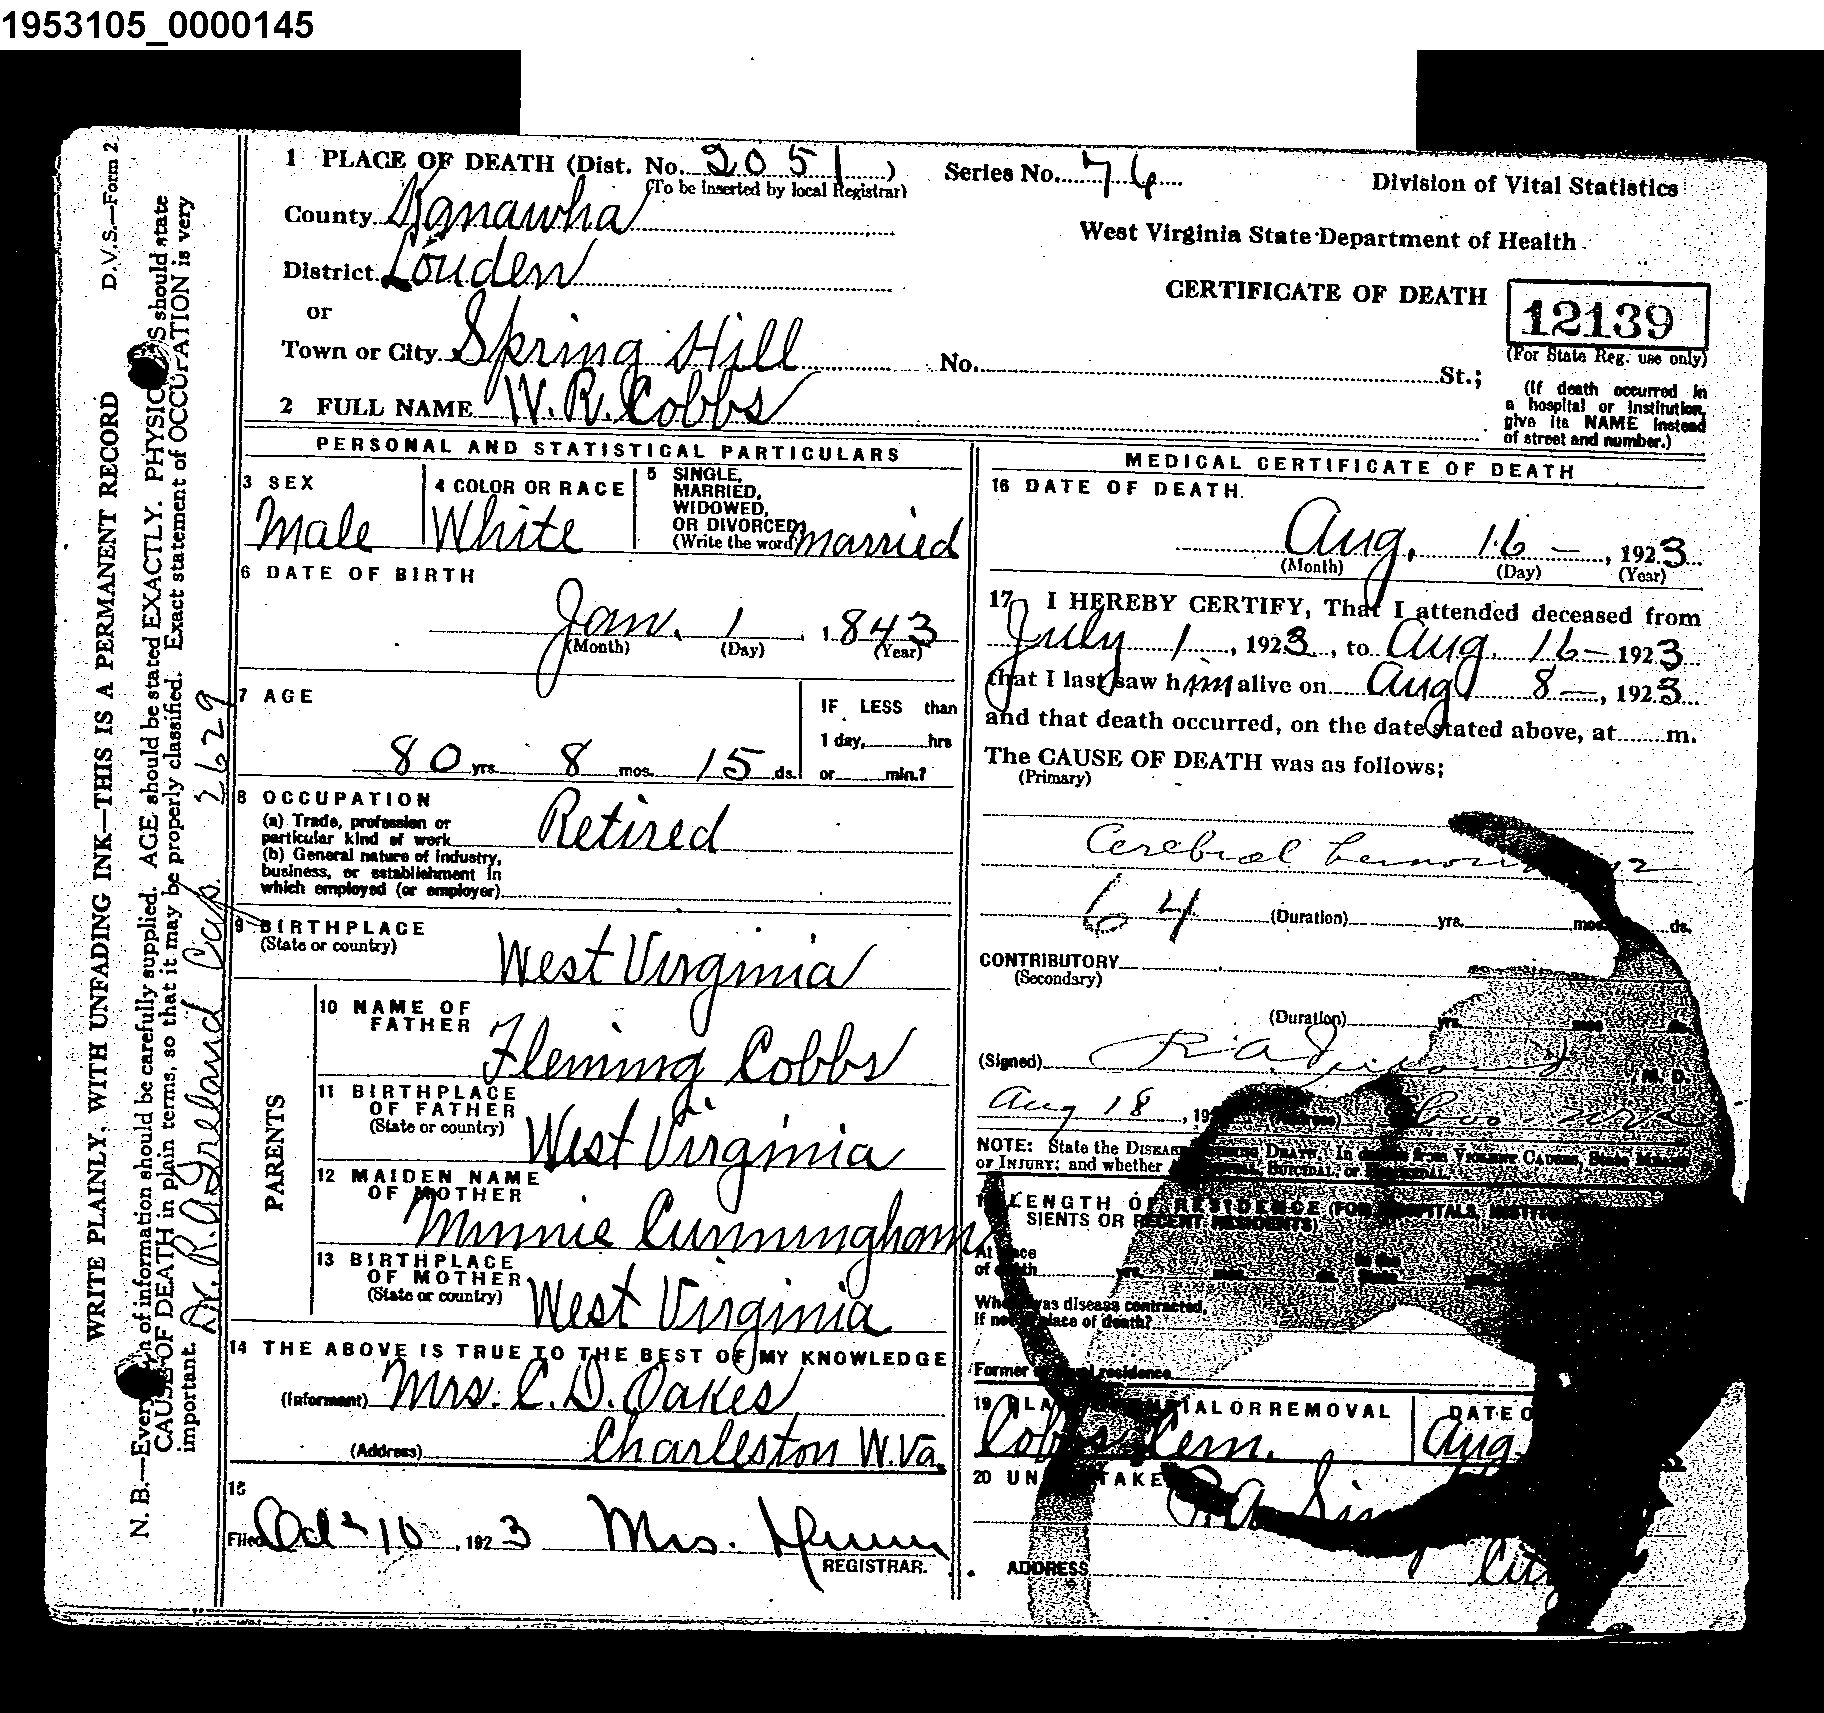 1953105_0000145
D.V.S.—Form 2
WRITE PLAINLY, WITH UNFADING INK—THIS IS A PERMANENT RECORD
N. B.—Every of information should be carefully supplied. AGE should be stated EXACTLY. PHYSIC S should state
CAUSE OF DEATH in plain terms, so that it may be properly classified. Exact statement of OCCUPATION is very
important. Dr. R. A. Ireland 2629
1 PLACE OF DEATH (Dist. No. 2051 ) Series No. 74
(To be inserted by local Registrar)
Division of Vital Statistics
County Kanawha
West Virginia State Department of Health
District Louden
CERTIFICATE OF DEATH
12139
(For State Reg. use only)
or
Town or City Spring Hill No. St.;
(If death occurred in
a hospital or institution,
give its NAME instead
of street and number.)
2 FULL NAME W. R. Cobbs
PERSONAL AND STATISTICAL PARTICULARS
3 SEX
Male
4 COLOR OR RACE
White
5 SINGLE,
MARRIED,
WIDOWED,
OR DIVORCED
(Write the word) Married
6 DATE OF BIRTH
Jan. 1 , 1843
(Month) (Day) (Year)
7 AGE
80 yrs. 8 mos. 15 ds.
IF LESS than
1 day, hrs
or min.?
8 OCCUPATION
(a) Trade, profession or
particular kind of work Retired
(b) General nature of industry,
business, or establishment in
which employed (or employer)
9 BIRTHPLACE
(State or country) West Virginia
PARENTS
10 NAME OF
FATHER Fleming Cobbs
11 BIRTHPLACE
OF FATHER
(State or country) West Virginia
12 MAIDEN NAME
OF MOTHER
Minnie Cunningham
13 BIRTHPLACE
OF MOTHER
(State or country) West Virginia
14 THE ABOVE IS TRUE TO THE BEST OF MY KNOWLEDGE
(Informant) Mrs. C. D. Oakes
(Address) Charleston W.Va.
15
Filed Oct 10 , 1923 Mrs.
REGISTRAR.
MEDICAL CERTIFICATE OF DEATH
16 DATE OF DEATH.
Aug. 16 — , 1923
(Month) (Day) (Year)
17 I HEREBY CERTIFY, That I attended deceased from
July 1 , 1923 , to Aug. 16 — 1923
that I last saw him alive on Aug 8 — , 1923
and that death occurred, on the date stated above, at m.
The CAUSE OF DEATH was as follows;
(Primary)
Cerebral
64 (Duration) yrs. mos. ds.
CONTRIBUTORY
(Secondary)
(Duration) yrs. mos ds.
(Signed) R. A. Ireland , M. D.
Aug 18 , 19
NOTE: State the DISEASE DEATH, In deaths from VIOLENT CAUSES, State MEANS
OF INJURY; and whether SUICIDAL, or
LENGTH OF RESIDENCE (FOR HOSPITALS,
SIENTS OR RECENT RESIDENTS)
At place
of death yrs. mos. ds. State
Where was disease contracted,
If not place of death?
Former residence
19 PLA IAL OR REMOVAL
Cobbs Cem.
DATE O
Aug.
20 UN TAKE
ADDRESS